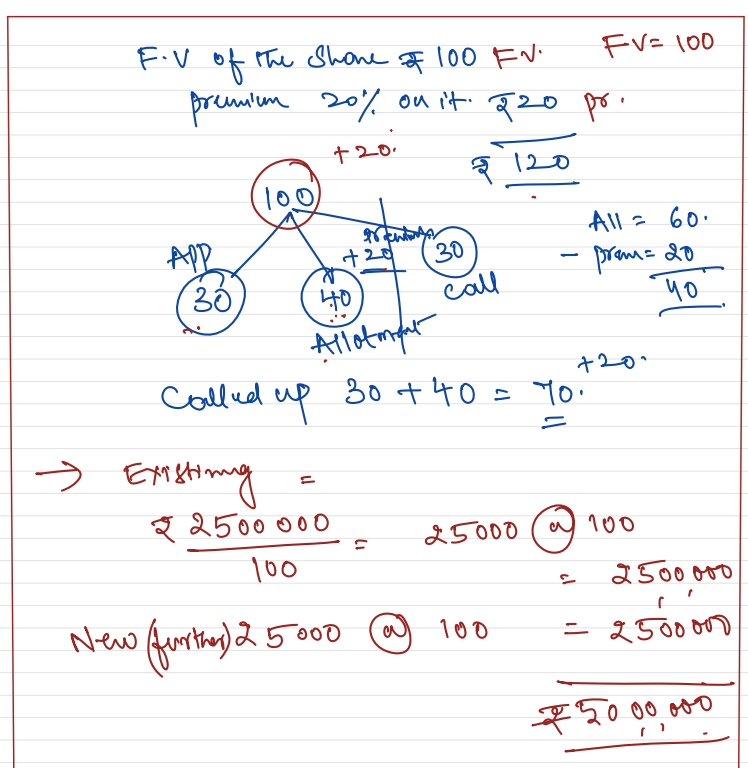 F.V of the Share ₹ 100 FV. FV= 100
premium 20% on it. ₹20 pr.
+20.
₹ 120
100
All = 60.
APP
premium
+20
30
- prem= 20
30
40
call
40
Allotment
+20.
Called up 30 + 40 = 70.
→ Existing =
₹ 2500 000
= 25000 @ 100
100
= 2500,000
New (further) 25000 @ 100 = 2500000
₹ 50 00,000